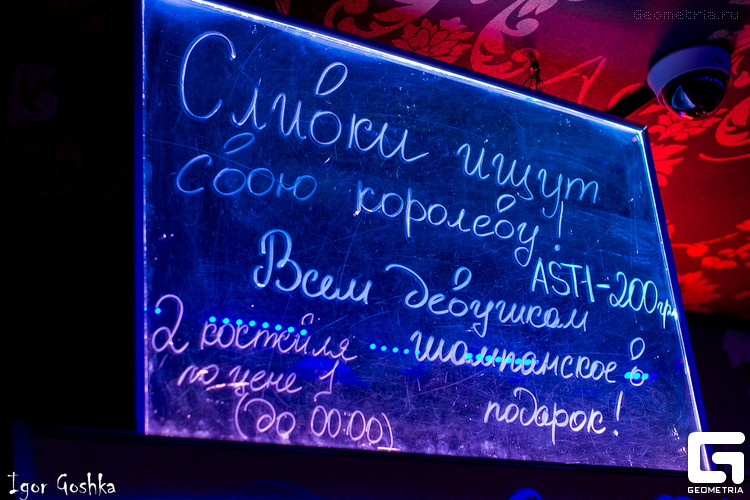 Geometria.ru
Сливки ищут
свою королеву!
ASTI-200гр
Всем девушкам
шампанское в
подарок!
2 коктейля
по цене 1
(до 00:00)
Igor Goshka
G
GEOMETRIA